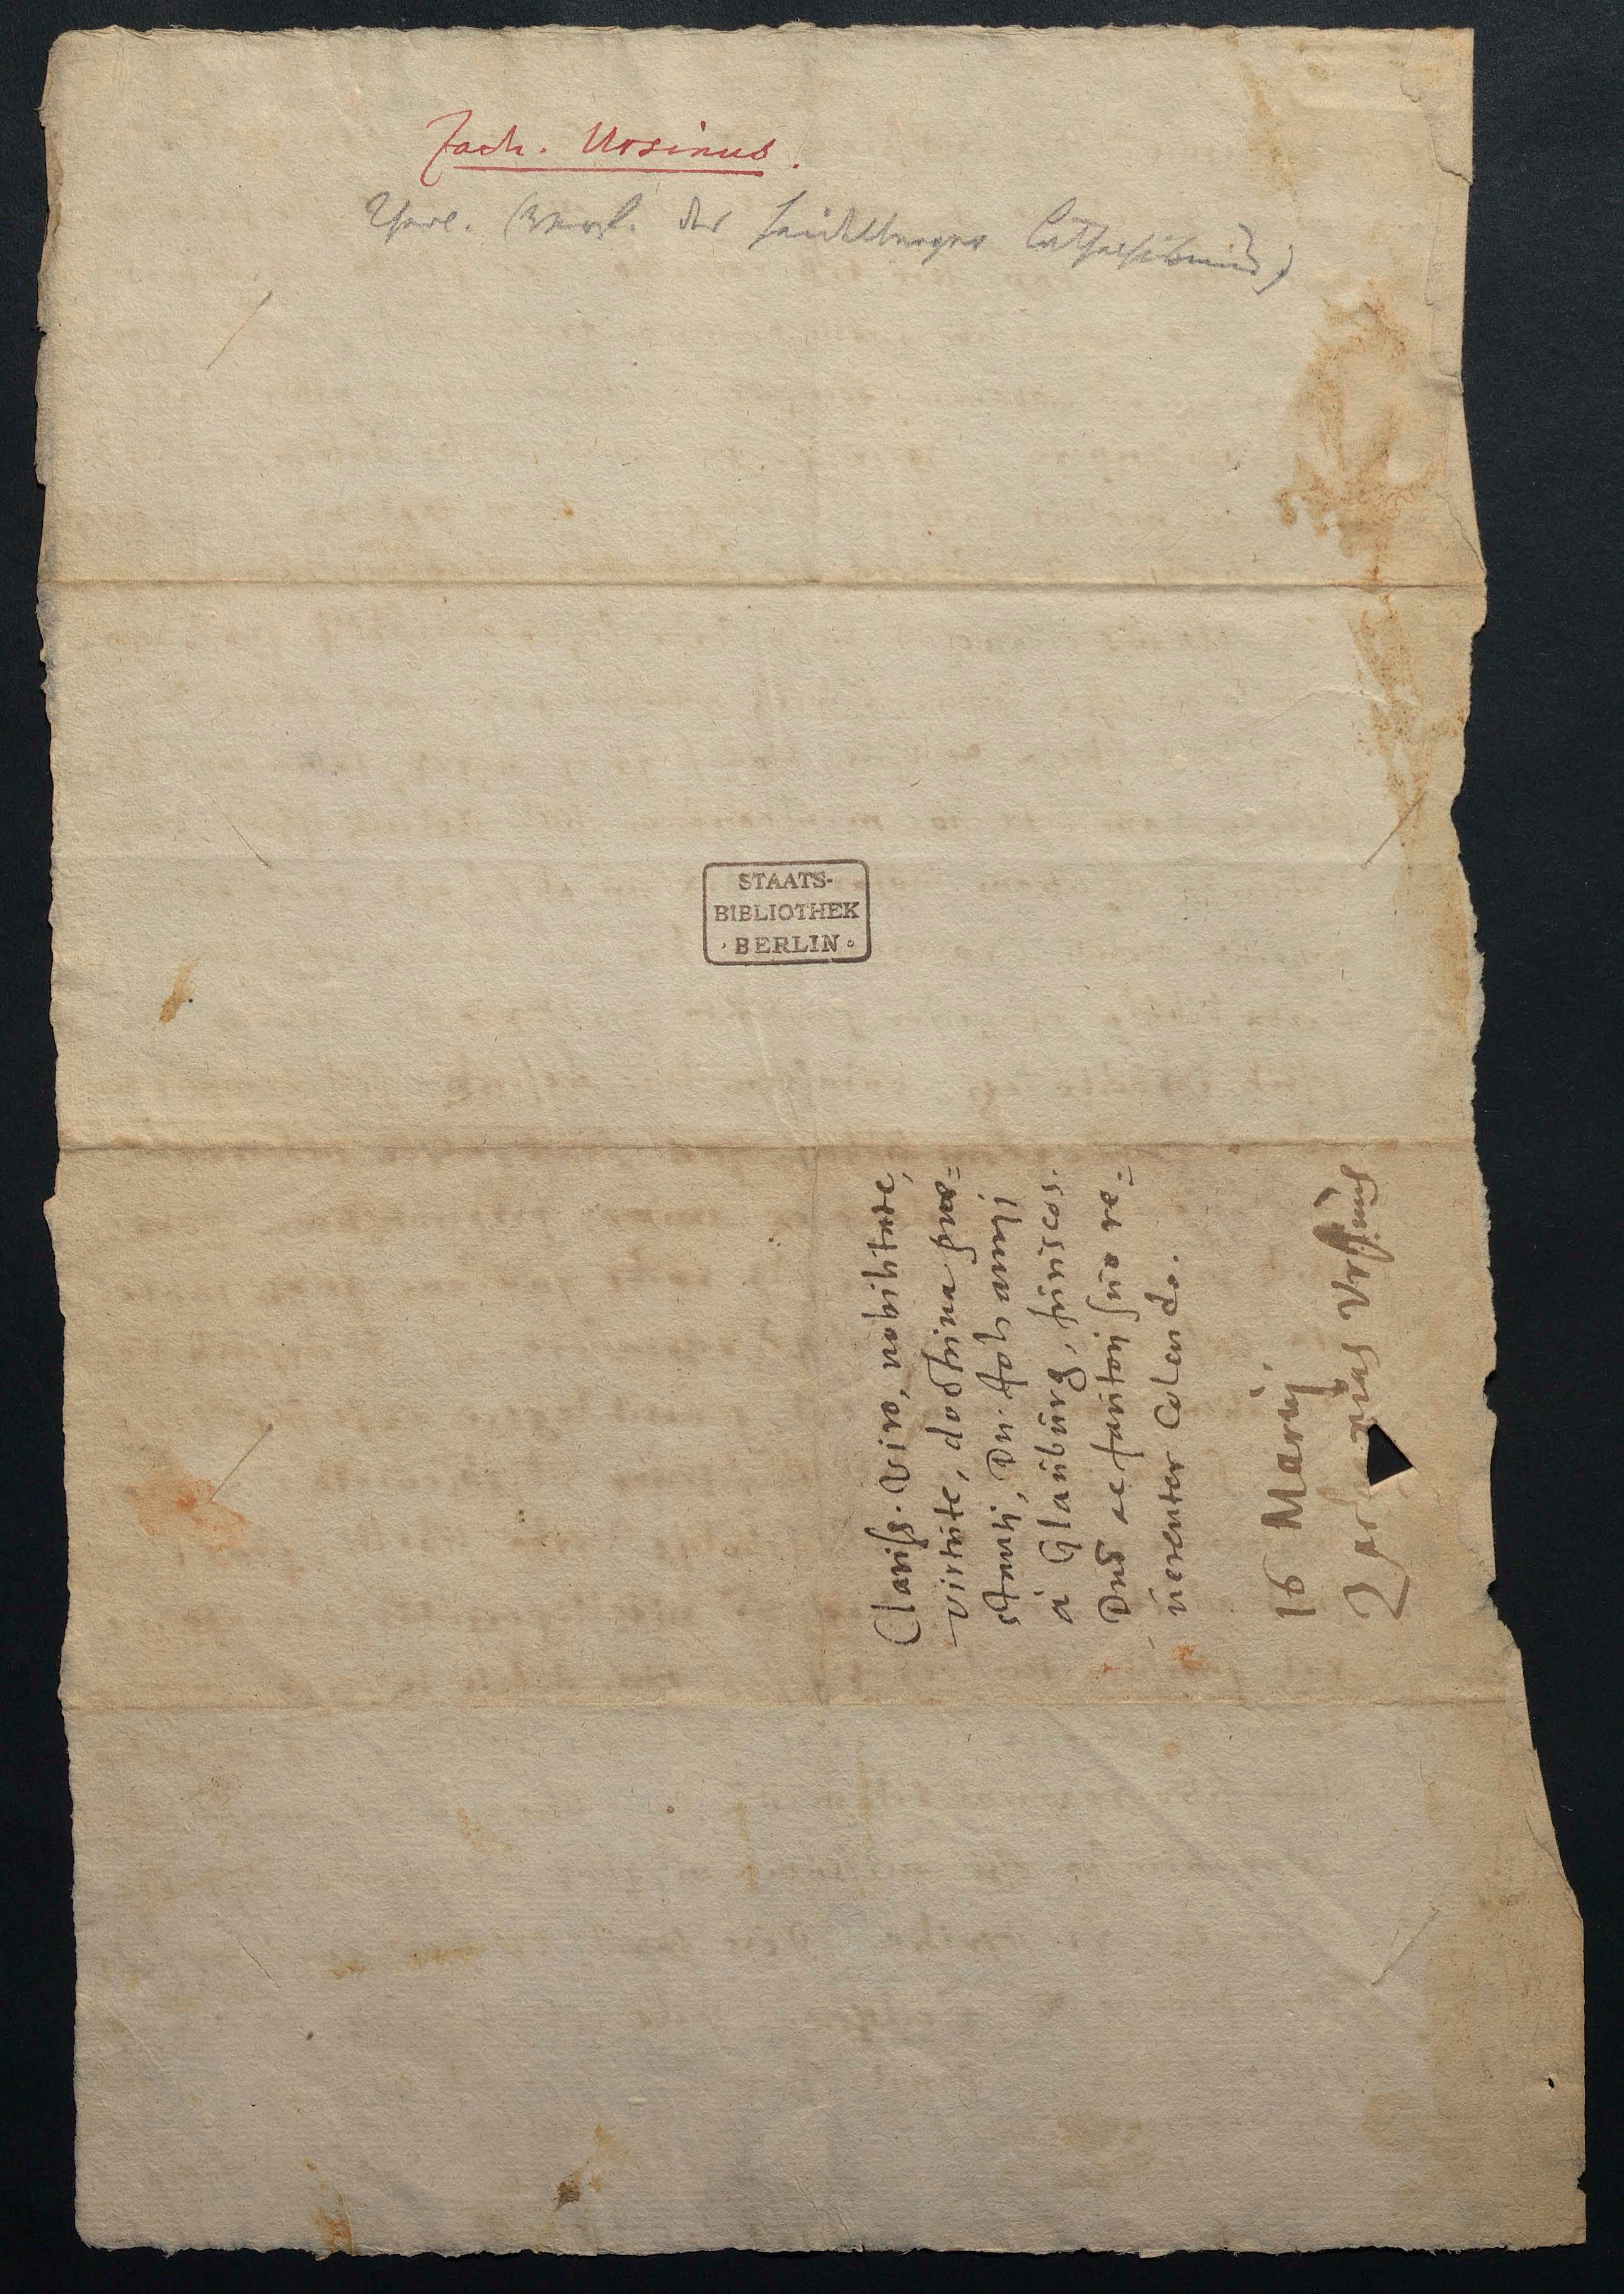 Zach. Ursinus.
Theol. (Verf. des Heidelberger Catechismus)
STAATS-
BIBLIOTHEK
BERLIN
Clariss. Viro, nobilitate,
virtute, doctrina prae=
stanti, Dn. Johanni
à Glauburg, Juriscos.
Dnō ac fautori suo re=
uerenter colendo.
16 Martij
Zacharias Vrsinus